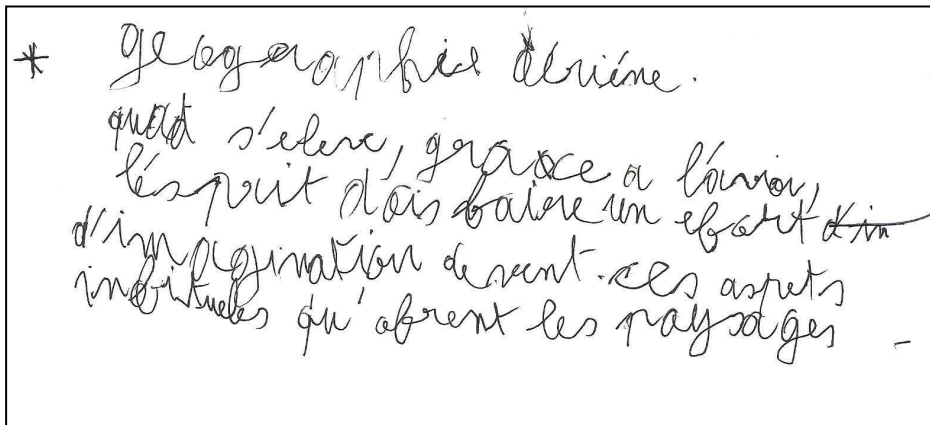 * geographie aériéne.
quad s'eleve, grace a l'avion,
l'ésprit dois faire un efort
d'imagination devant ces aspets
inbitueles qu'ofrent les paysages